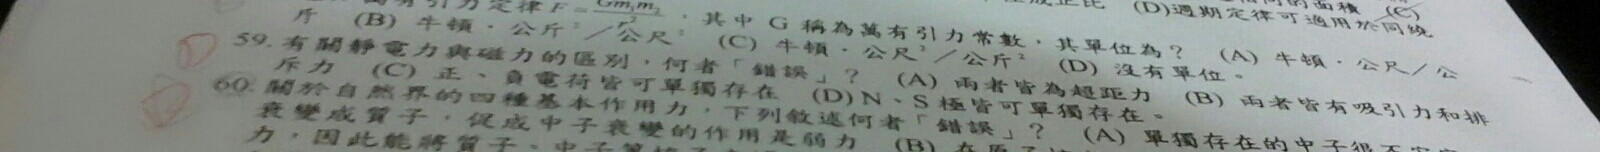 (D)週期定律可適用於同繞
萬有引力定律F=Gm₁m₂/r²,其中 G 稱為萬有引力常數,其單位為? (A) 牛頓.公尺/公
斤 (B) 牛頓.公斤²/公尺² (C) 牛頓.公尺²/公斤² (D) 沒有單位。
59. 有關靜電力與磁力的區別,何者「錯誤」? (A) 兩者皆為超距力 (B) 兩者皆有吸引力和排
斥力 (C) 正、負電荷皆可單獨存在 (D) N、S 極皆可單獨存在。
60. 關於自然界的四種基本作用力,下列敘述何者「錯誤」? (A) 單獨存在的中子很不
衰變成質子,促成中子衰變的作用是弱力 (B) 在原子
力,因此能將質子、中子